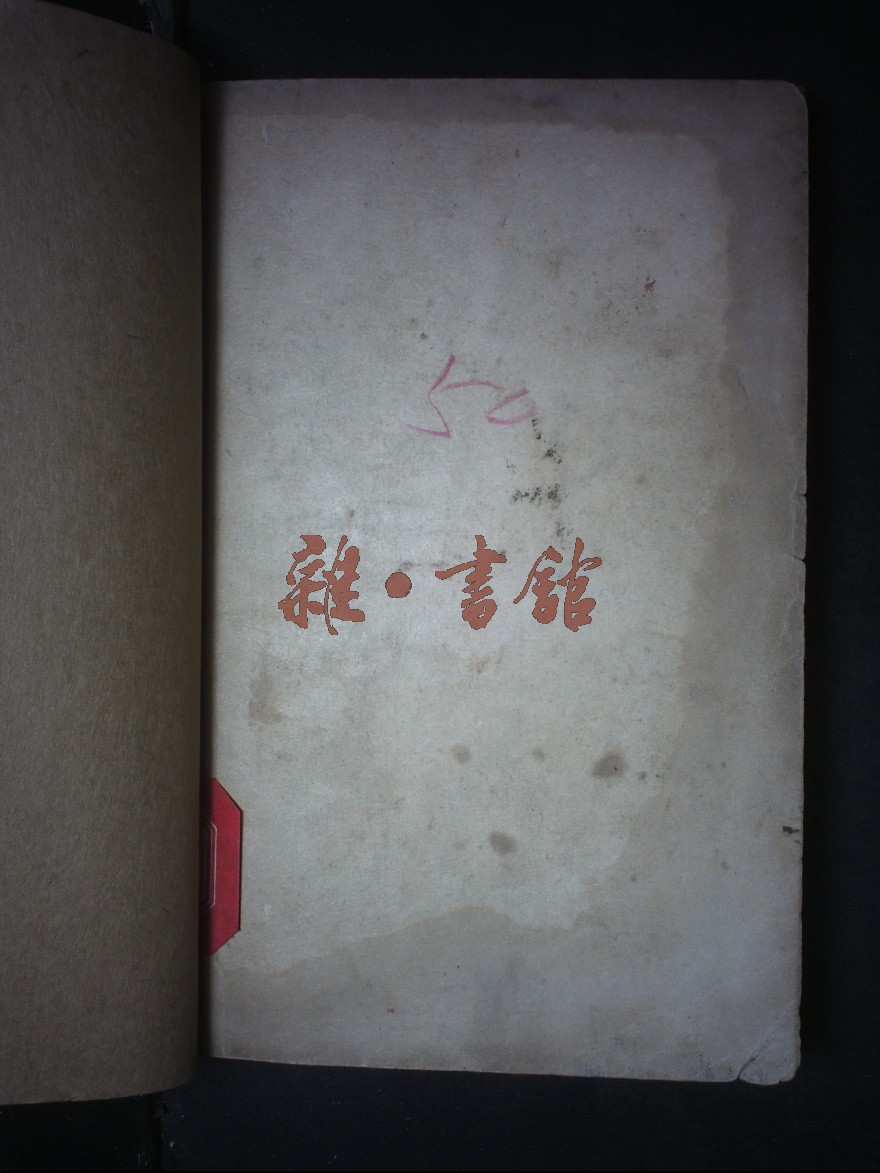 50
雜·書館